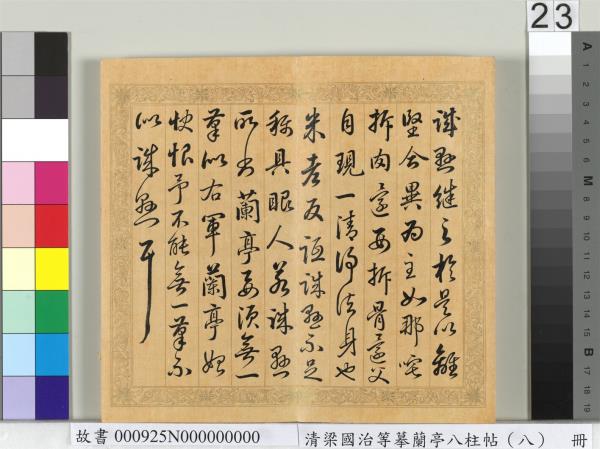 誠懸繼之於是以離
堅合異為主如那吒
拆肉還母拆骨還父
自現一清淨法身也
米老反詆誠懸不足
稱具眼人若誠懸
所書蘭亭要須無一
筆似右軍蘭亭始
快恨予不能無一筆不
似誠懸耳
23
A 1 2 3 4 5 6 M 8 9 10 11 12 13 14 15 B 17 18 19
故書 000925N000000000 清梁國治等摹蘭亭八柱帖（八） 冊